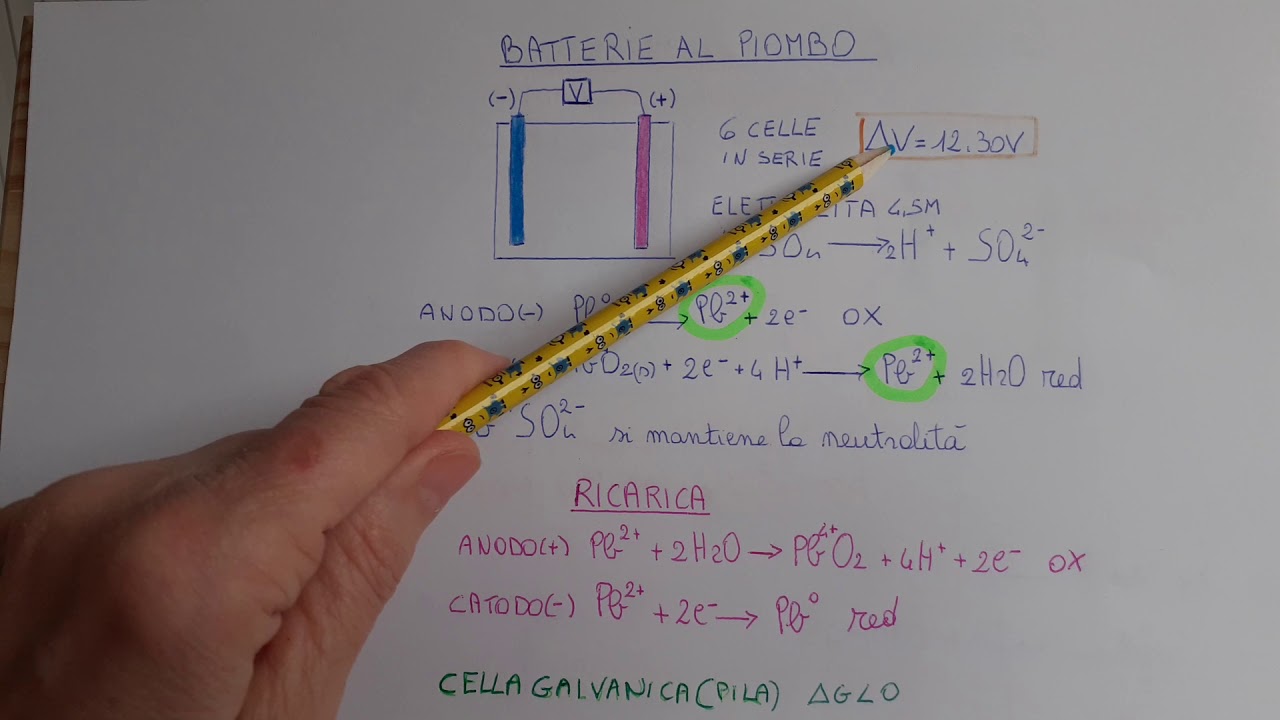 BATTERIE AL PIOMBO
(-) V (+)
6 CELLE
IN SERIE
ΔV=12.30V
4,5M
SO₄ → 2H⁺ + SO₄²⁻
ANODO(-) Pb⁰ → Pb²⁺ + 2e⁻ OX
O₂(s) + 2e⁻ + 4H⁺ → Pb²⁺ + 2H₂O red
SO₄²⁻ si mantiene la neutralità
RICARICA
ANODO(+) Pb²⁺ + 2H₂O → Pb⁴⁺O₂ + 4H⁺ + 2e⁻ OX
CATODO(-) Pb²⁺ + 2e⁻ → Pb⁰ red
CELLA GALVANICA (PILA) ΔG<0